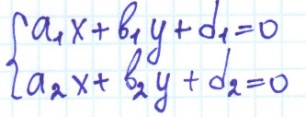 a₁x + b₁y + d₁ = 0
a₂x + b₂y + d₂ = 0